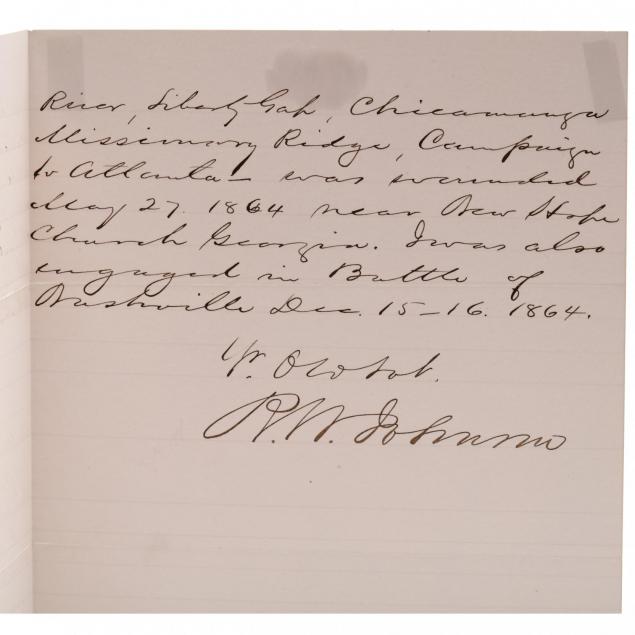 River, Liberty Gap, Chicamauga
Missionary Ridge, Campaign
to Atlanta — was wounded
May 27. 1864 near New Hope
Church Georgia. I was also
engaged in Battle of
Nashville Dec. 15-16. 1864.
Yr. Obd Svt.
R. W. Johnson